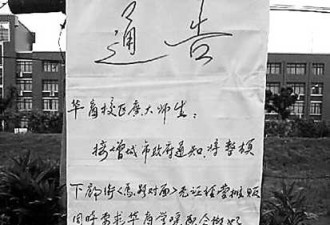 通告
华商校区广大师生：
接增城市政府通知，将整顿
下廊街《
对面》无证经营摊贩
同时要求华商学院配合做好